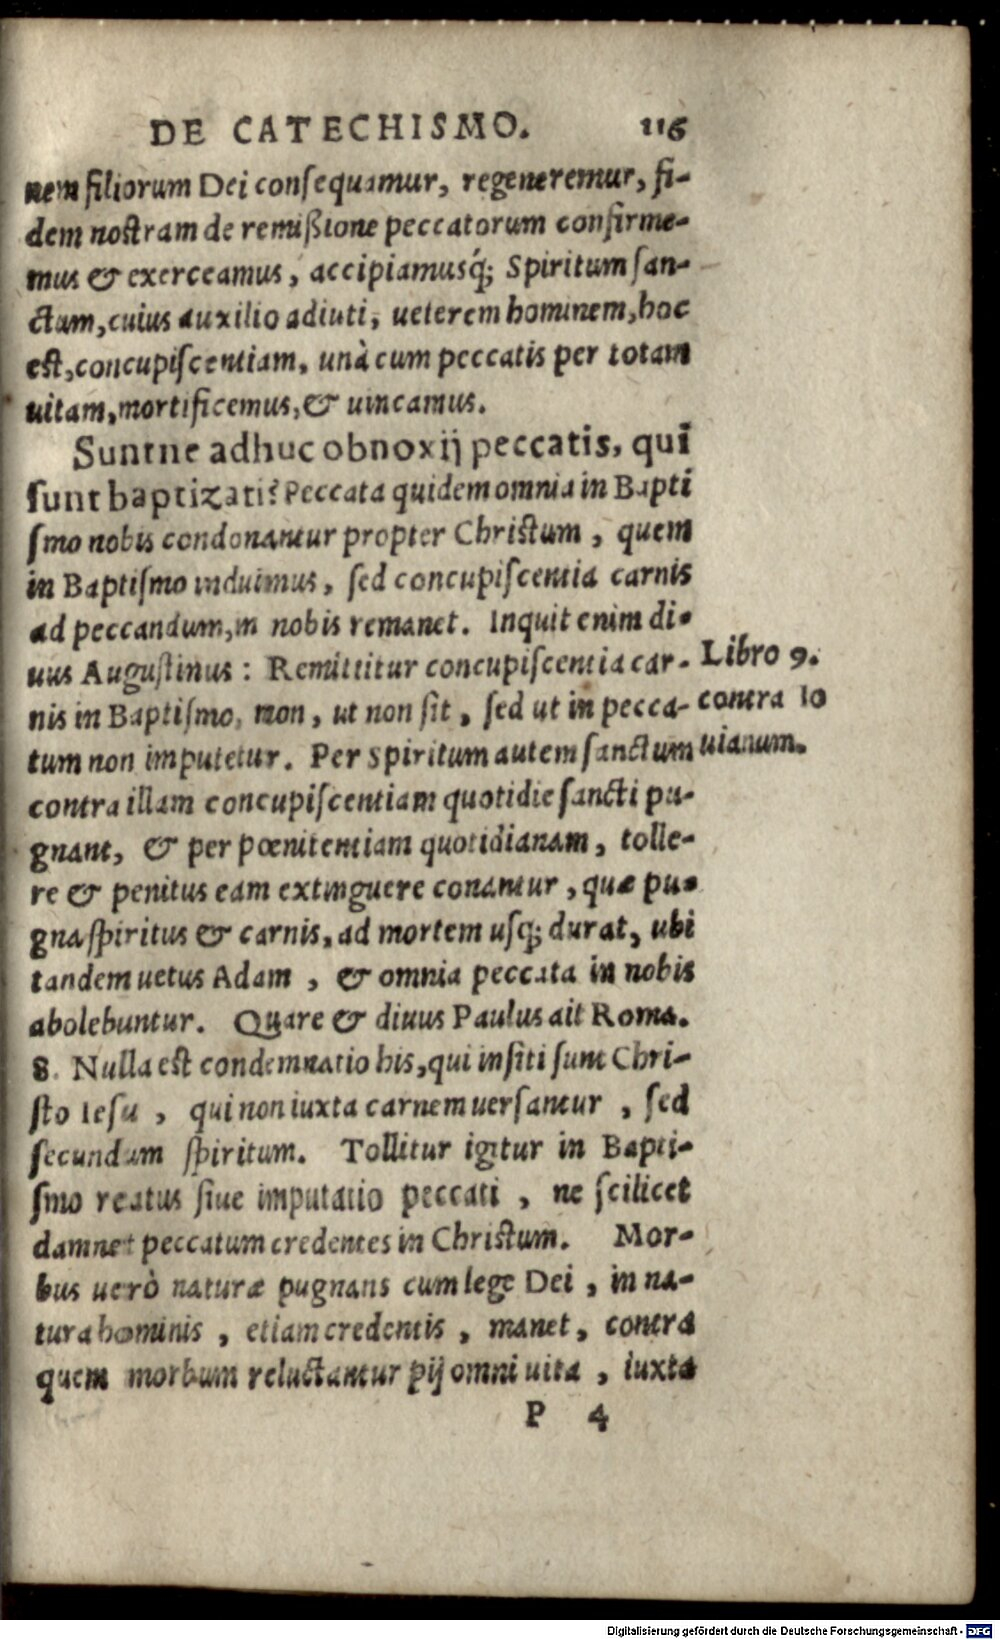 DE CATECHISMO. 116
nem filiorum Dei consequamur, regeneremur, fi-
dem nostram de remißione peccatorum confirme-
mus & exerceamus, accipiamusq́; Spiritum san-
ctum, cuius auxilio adiuti, ueterem hominem, hoc
est, concupiscentiam, unà cum peccatis per totam
uitam, mortificemus, & uincamus.
Suntne adhuc obnoxij peccatis, qui
sunt baptizati? Peccata quidem omnia in Bapti
smo nobis condonantur propter Christum, quem
in Baptismo induimus, sed concupiscentia carnis
ad peccandum, in nobis remanet. Inquit enim di-
uus Augustinus: Remittitur concupiscentia car-
nis in Baptismo, non, ut non sit, sed ut in pecca-
tum non imputetur. Per Spiritum autem sanctum
contra illam concupiscentiam quotidie sancti pu-
gnant, & per pœnitentiam quotidianam, tolle-
re & penitus eam extinguere conantur, quæ pu-
gna spiritus & carnis, ad mortem usq; durat, ubi
tandem uetus Adam, & omnia peccata in nobis
abolebuntur. Quare & diuus Paulus ait Roma.
8. Nulla est condemnatio his, qui insiti sunt Chri-
sto Iesu, qui non iuxta carnem uersantur, sed
secundum spiritum. Tollitur igitur in Bapti-
smo reatus siue imputatio peccati, ne scilicet
damnet peccatum credentes in Christum. Mor-
bus uerò naturæ pugnans cum lege Dei, in na-
tura hominis, etiam credentis, manet, contra
quem morbum reluctantur pij omni uita, iuxta
P 4
Libro 9.
contra Io
uianum.
Digitalisierung gefördert durch die Deutsche Forschungsgemeinschaft - DFG